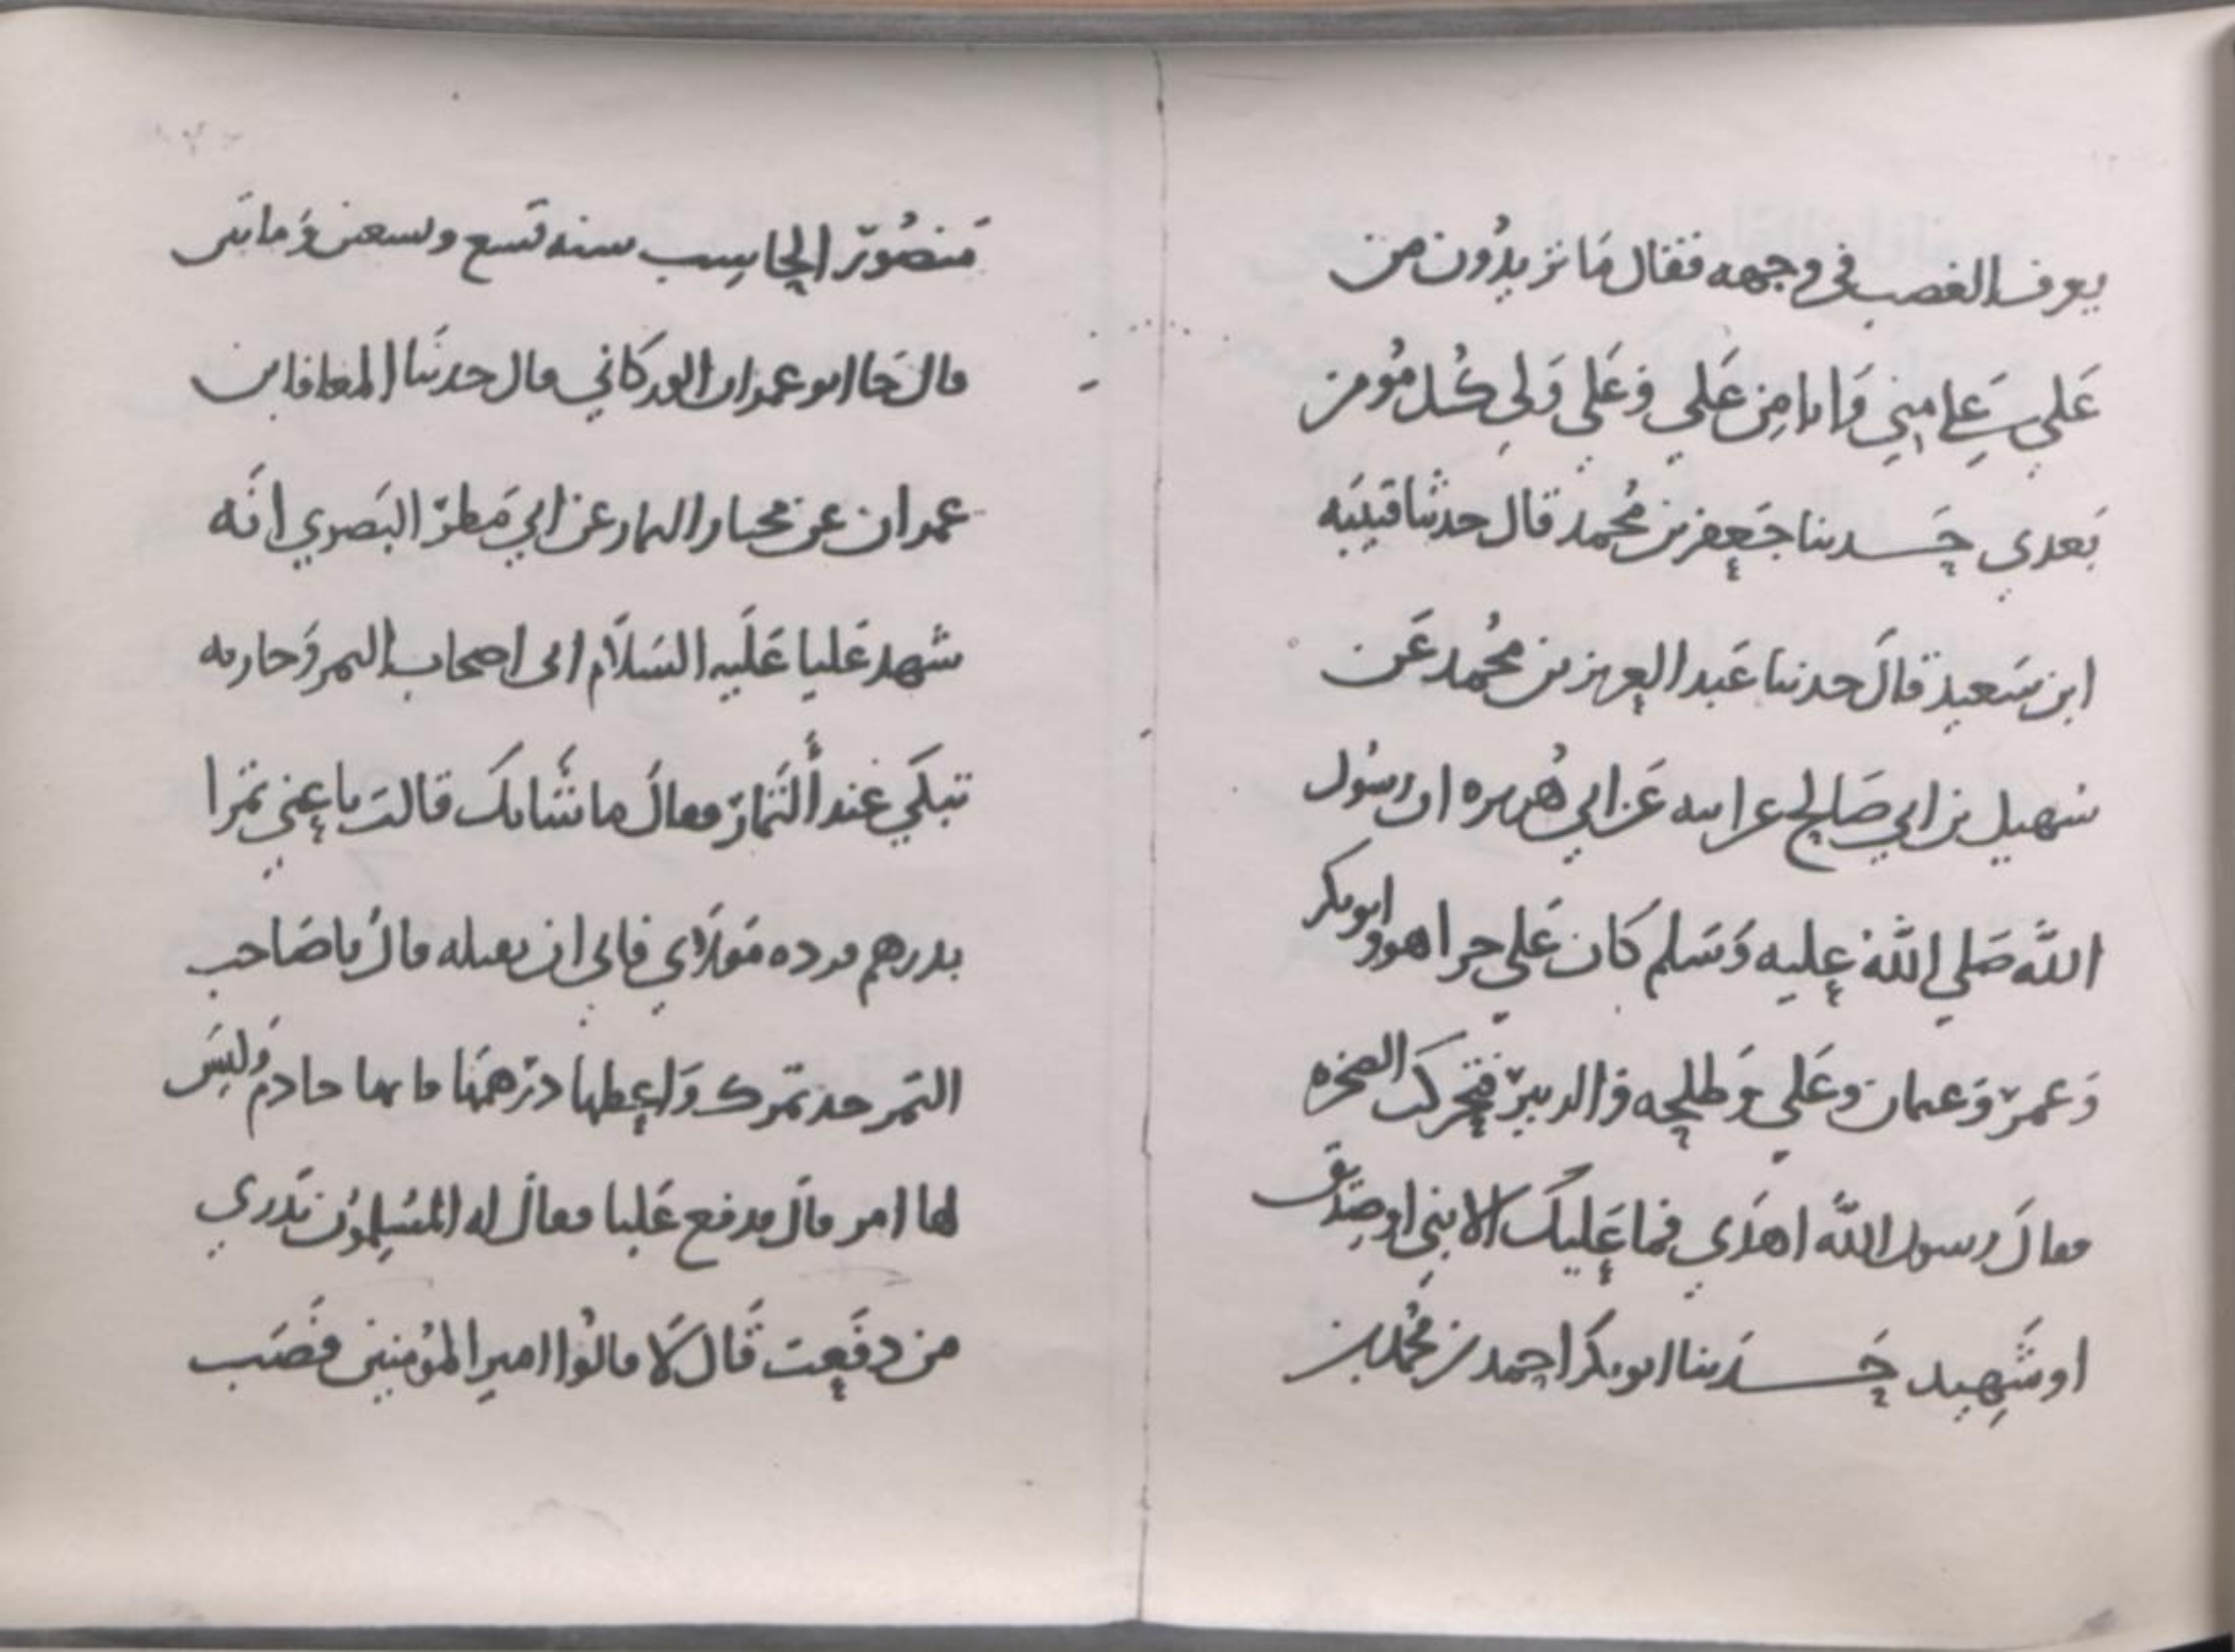 يعرف الغضب في وجهه فقال ما تريدون من
علي علي مني وانا من علي وعلي ولي كل مومن
بعدي حدثنا جعفر بن محمد قال حدثنا قتيبه
ابن سعيد قال حدثنا عبد العزيز بن محمد عن
سهيل بن ابي صالح عن ابيه عن ابي هريره ان رسول
الله صلي الله عليه وسلم كان علي حرا هو وابو بكر
وعمر وعثمان وعلي وطلحه والزبير فتحركت الصخره
فقال رسول الله اهدي فما عليك الا نبي او صديق
او شهيد حدثنا ابو بكر احمد بن محمد بن
منصور الحاسب سنه تسع وتسعين ومايتين
قال حا ابو عمران الوركاني قال حدثنا المعافا بن
عمران عن مختار التمار عن ابي مطر البصري انه
شهد عليا عليه السلام اتى اصحاب التمر وجاريه
تبكي عند التمار فقال ما شانك قالت باعني تمرا
بدرهم فرده مولاي فابى ان يقبله قال يا صاحب
التمر خذ تمرك واعطها درهمها فانها خادم وليس
لها امر قال فدفع عليا فقال له المسلمون تدري
من دفعت قال لا قالوا امير المؤمنين فصب